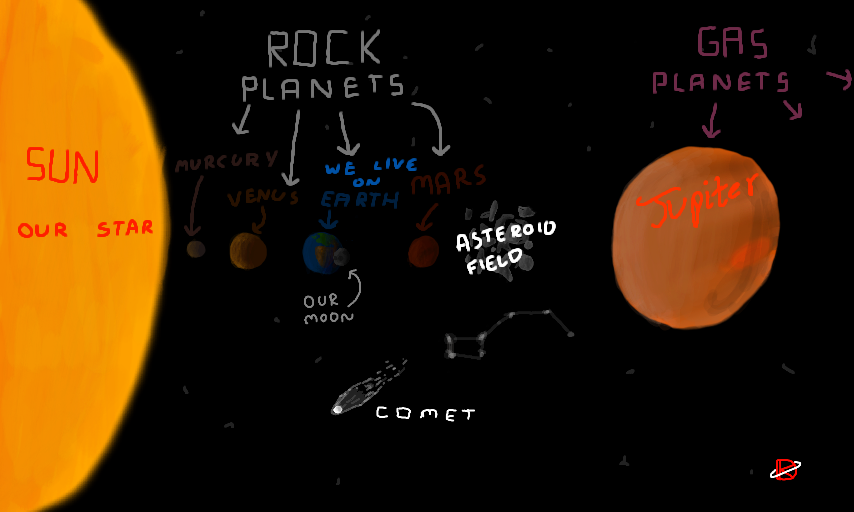 ROCK
PLANETS
GAS
PLANETS
SUN
OUR STAR
MURCURY
VENUS
WE LIVE
ON
EARTH
MARS
OUR
MOON
ASTEROID
FIELD
Jupiter
COMET